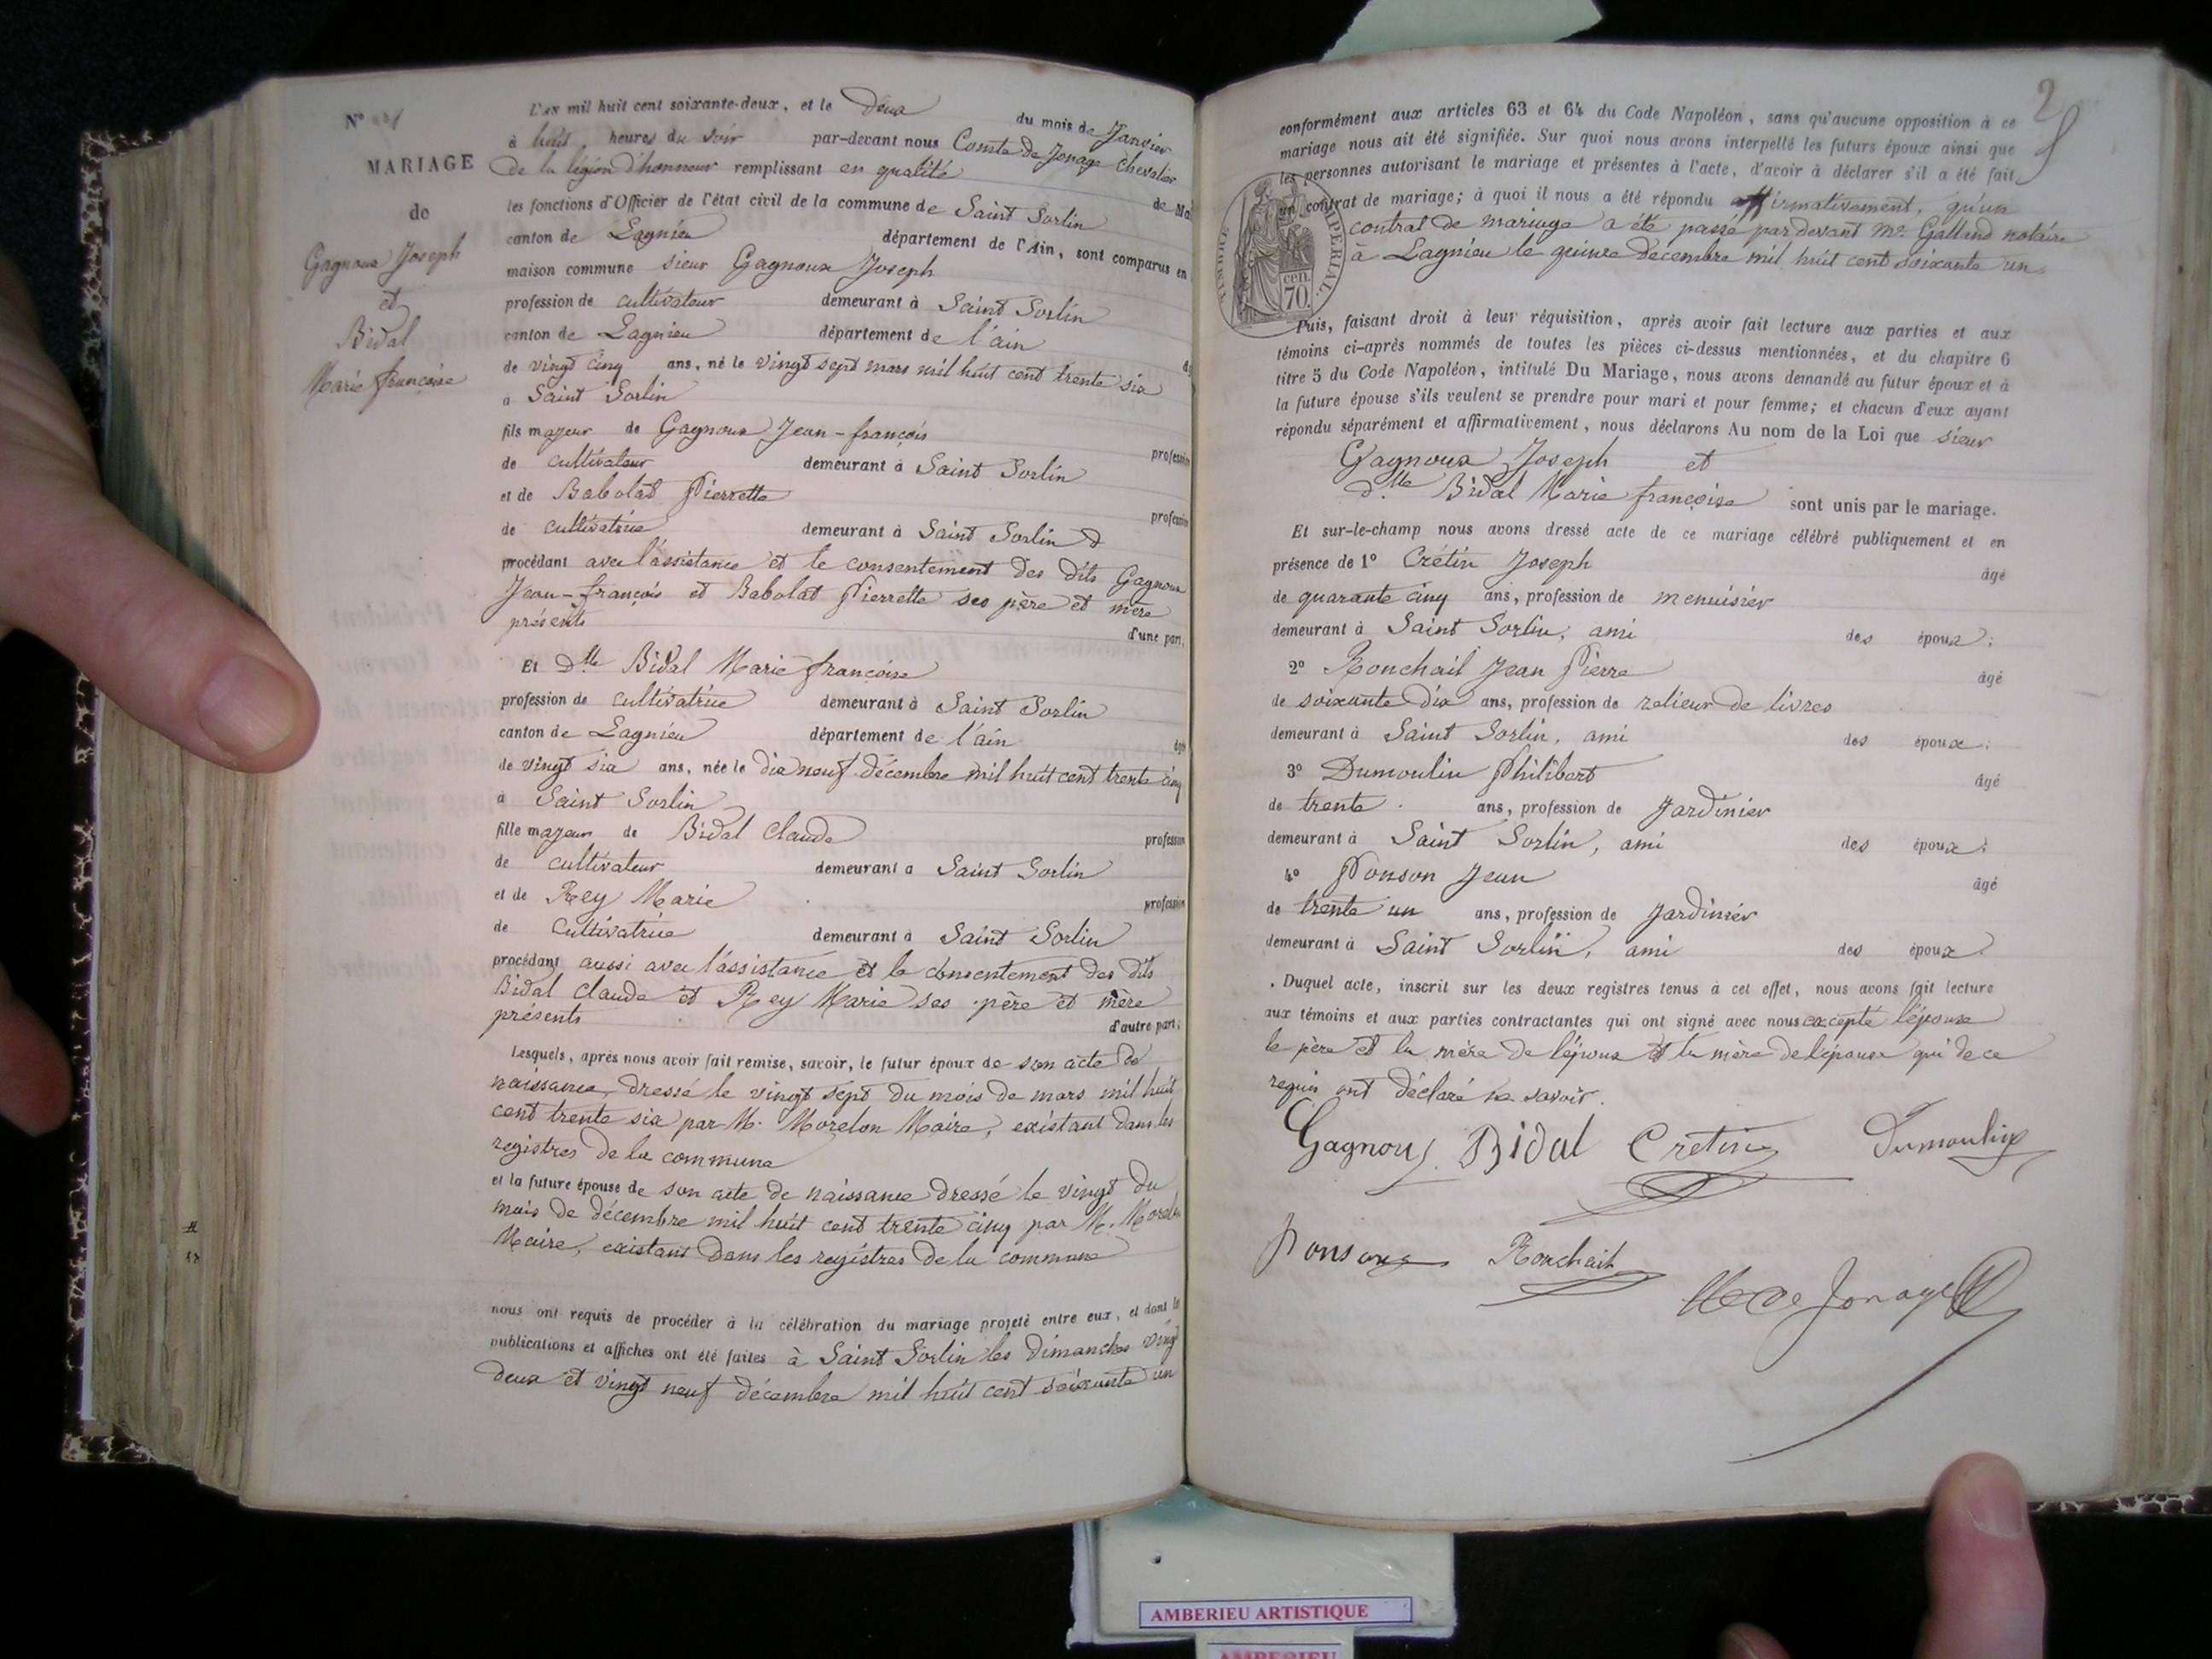 N°
MARIAGE
de
Gagnoux Joseph
et
Bidal
Marie françoise
L'an mil huit cent soixante-deux, et le deux du mois de Janvier
à huit heures du soir par-devant nous Comte de Jonage Chevalier
de la légion d'honneur remplissant en qualité de Ma
les fonctions d'Officier de l'état civil de la commune de Saint Sorlin
canton de Lagnieu département de l'Ain, sont comparus en
maison commune sieur Gagnoux Joseph
profession de cultivateur demeurant à Saint Sorlin
canton de Lagnieu département de l'ain
de vingt cinq ans, né le vingt sept mars mil huit cent trente six
à Saint Sorlin
fils majeur de Gagnoux Jean-françois profession
de cultivateur demeurant à Saint Sorlin
et de Babolat Pierrette profession
de cultivatrice demeurant à Saint Sorlin
procédant avec l'assistance et le consentement des dits Gagnoux
Jean-françois et Babolat Pierrette ses père et mère
présents d'une part,
Et Dlle Bidal Marie françoise
profession de cultivatrice demeurant à Saint Sorlin
canton de Lagnieu département de l'ain âgé
de vingt six ans, née le dix neuf décembre mil huit cent trente cinq
à Saint Sorlin
fille majeur de Bidal Claude profession
de cultivateur demeurant a Saint Sorlin
et de Rey Marie profession
de Cultivatrice demeurant à Saint Sorlin
procédant aussi avec l'assistance et le consentement des dits
Bidal Claude et Rey Marie ses père et mère
présents d'autre part;
Lesquels, après nous avoir fait remise, savoir, le futur époux de son acte de
naissance, dressé le vingt sept du mois de mars mil huit
cent trente six par M. Morelon Maire, existant dans les
registres de la commune
et la future épouse de son acte de naissance dressé le vingt du
mois de décembre mil huit cent trente cinq par M. Morelon
Maire, existant dans les registres de la commune
nous ont requis de procéder à la célébration du mariage projeté entre eux, et dont les
publications et affiches ont été faites à Saint Sorlin les dimanches vingt
deux et vingt neuf décembre mil huit cent soixante un
2
conformément aux articles 63 et 64 du Code Napoléon, sans qu'aucune opposition à ce
mariage nous ait été signifiée. Sur quoi nous avons interpellé les futurs époux ainsi que
les personnes autorisant le mariage et présentes à l'acte, d'avoir à déclarer s'il a été fait
un contrat de mariage; à quoi il nous a été répondu affirmativement, qu'un
contrat de mariage a été passé par devant Me Galland notaire
à Lagnieu le quinze décembre mil huit cent soixante un.
TIMBRE IMPERIAL.
cen.
70.
Puis, faisant droit à leur réquisition, après avoir fait lecture aux parties et aux
témoins ci-après nommés de toutes les pièces ci-dessus mentionnées, et du chapitre 6
titre 5 du Code Napoléon, intitulé Du Mariage, nous avons demandé au futur époux et à
la future épouse s'ils veulent se prendre pour mari et pour femme; et chacun d'eux ayant
répondu séparément et affirmativement, nous déclarons Au nom de la Loi que sieur
Gagnoux Joseph et
dlle Bidal Marie françoise sont unis par le mariage.
Et sur-le-champ nous avons dressé acte de ce mariage célébré publiquement et en
présence de 1° Crétin Joseph âgé
de quarante cinq ans, profession de menuisier
demeurant à Saint Sorlin, ami des époux;
2° Ronchail Jean Pierre âgé
de soixante dix ans, profession de relieur de livres
demeurant à Saint Sorlin, ami des époux;
3° Dumoulin Philibert âgé
de trente ans, profession de Jardinier
demeurant à Saint Sorlin, ami des époux;
4° Ponson Jean âgé
de trente un ans, profession de Jardinier
demeurant à Saint Sorlin, ami des époux.
Duquel acte, inscrit sur les deux registres tenus à cet effet, nous avons fait lecture
aux témoins et aux parties contractantes qui ont signé avec nous excepté l'épouse
le père et la mère de l'époux et la mère de l'épouse qui de ce
requis ont déclaré ne savoir.
Gagnoux Bidal Cretin Dumoulin
Ponson Ronchail
de Jonage
AMBERIEU ARTISTIQUE
AMBERIEU